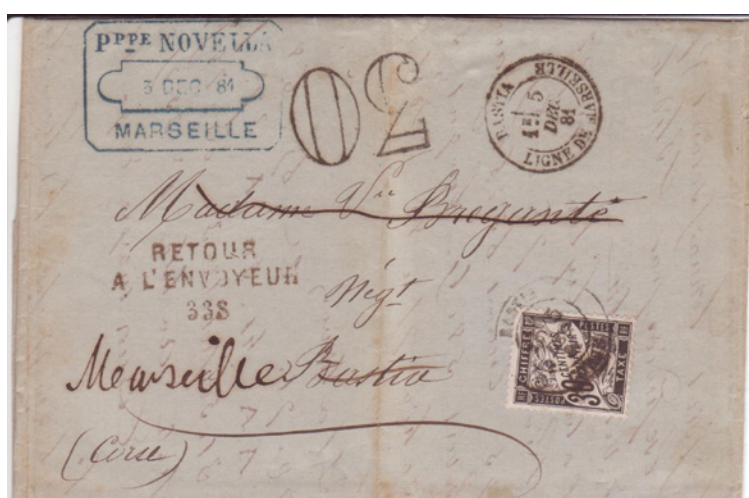 Pppe NOVELLA
3 DEC 81
MARSEILLE
30
BASTIA
LIGNE DE MARSEILLE
1E
5
DEC
81
Madame Vve Bregante
RETOUR
A L'ENVOYEUR
338
Négt
BASTIA
Marseille Bastia
(Corse)
CHIFFRE
TAXE
POSTES
30
CENTIMES
A PERCEVOIR